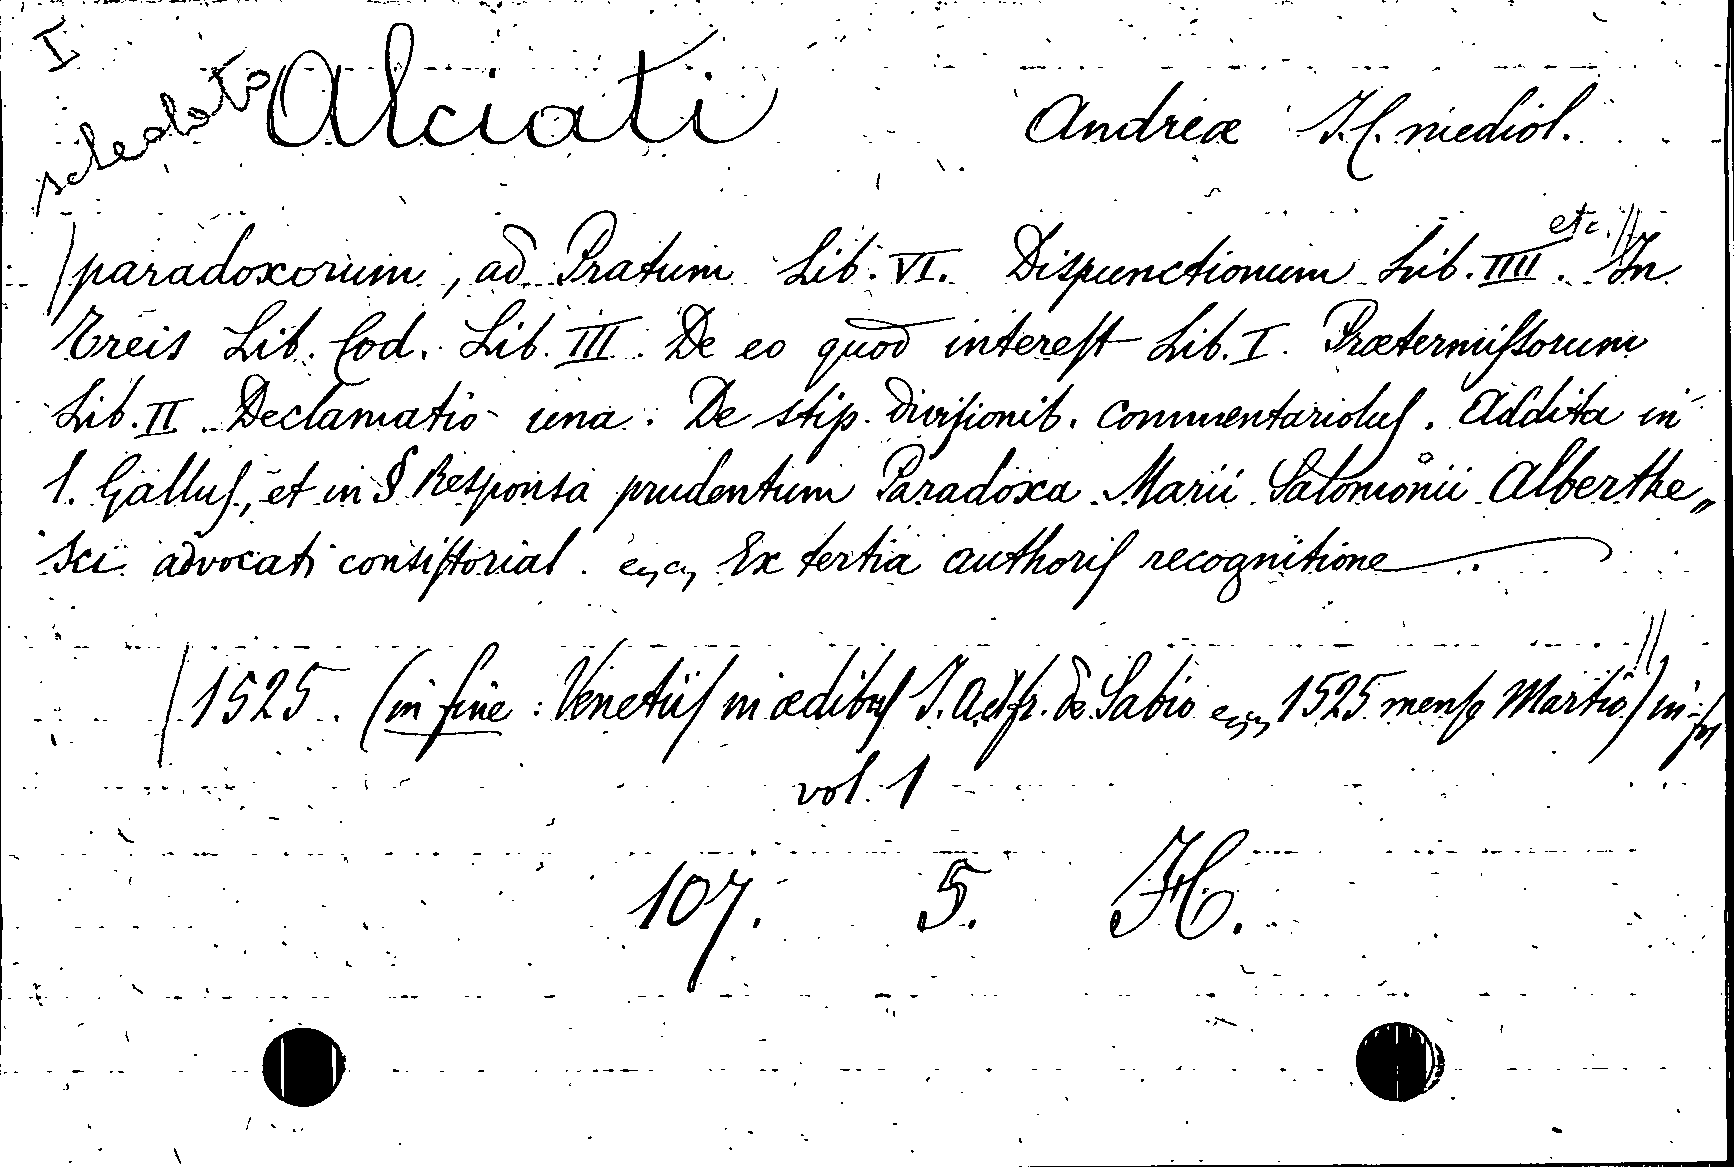 I
schedato
Alciati Andreæ J.C. mediol.
paradoxorum, ad Pratum Lib. VI. Dispunctionum Lib. IIII. etc. In
treis Lib. Cod. Lib. III. De eo quod interest Lib. I. Prætermissorum
Lib. II Declamatio una. De stip. divisionib. commentariolus. Addita in
l. Gallus, et in § Responsa prudentum Paradoxa Marii Salomonii Alberthe„
sci advocati consistorial. Ex tertia authoris recognitione.
1525. (in fine: Venetiis in ædibus J. A. et fr. de Sabio 1525 mense Martio) in-
vol. 1
107. 5. H.